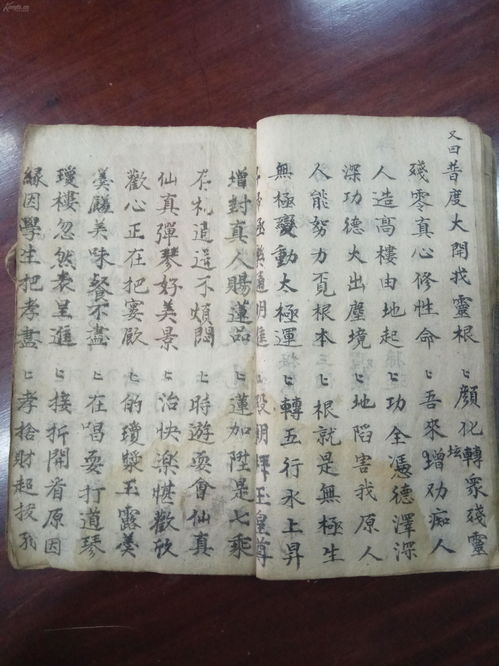 又曰 普度大開找靈根 匕 顔化轉衆殘靈
殘零真心修性命 匕 吾來坛增劝痴人
人造高樓由地起 匕 功全憑德澤深
深功德火出塵境 匕 地陷害我原人
人能努力覔根本 匕 根就是無極生
無極變動太極運 匕 轉五行永上昇
極樂通明進 匕 殿朝拜玉皇尊
增對真人賜蓮品 匕 蓮加陞是七乘
礼逍遥不煩悶 匕 時遊耍會仙真
仙真彈琴好美景 匕 治快樂堪歡欣
歡心正在把宴飲 匕 的瓊漿玉露羮
羮饌美味餐不盡 匕 在唱耍打道琴
瓊樓忽然表呈進 匕 接折開看原因
緣因學生把孝盡 匕 孝捨財超拔